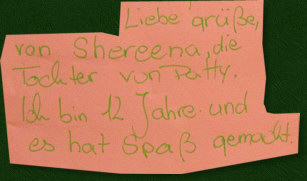 Liebe grüße,
von Shereena, die
Tochter von Patty.
Ich bin 12 Jahre. und
es hat Spaß gemacht.